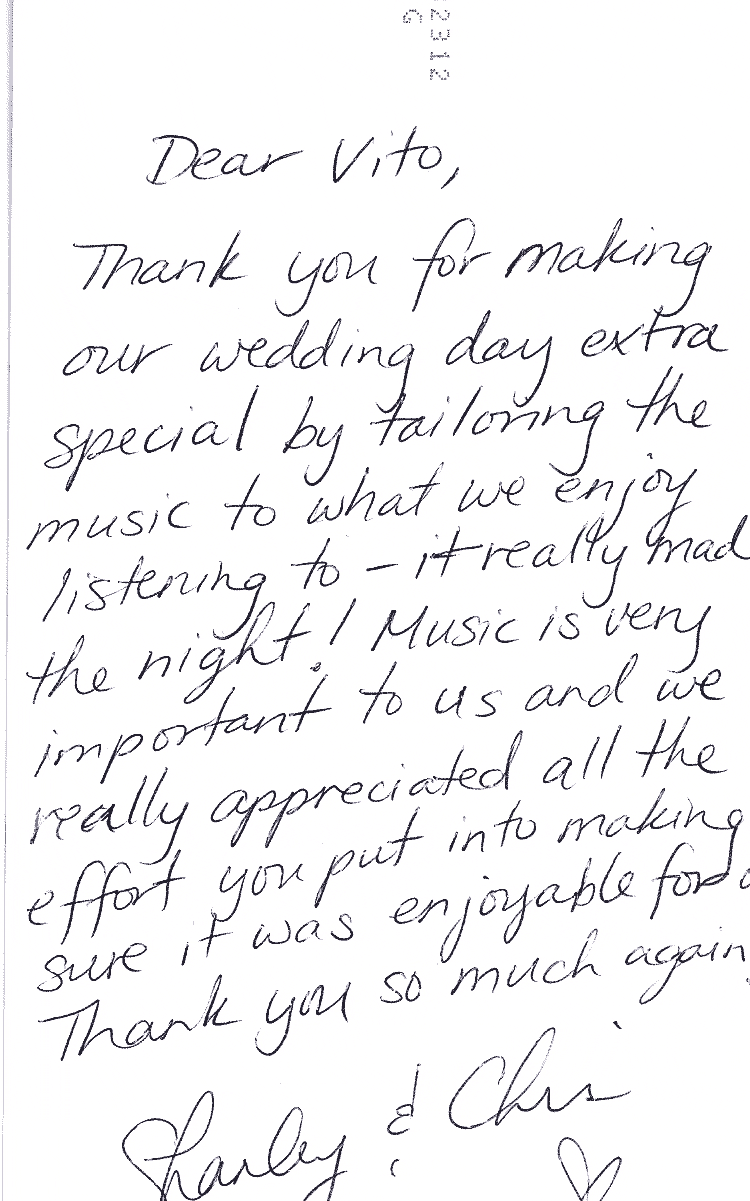 2312
G
Dear Vito,
Thank you for making
our wedding day extra
special by tailoring the
music to what we enjoy
listening to – it really mad
the night! Music is very
important to us and we
really appreciated all the
effort you put into making
sure it was enjoyable for
Thank you so much again
& Chris